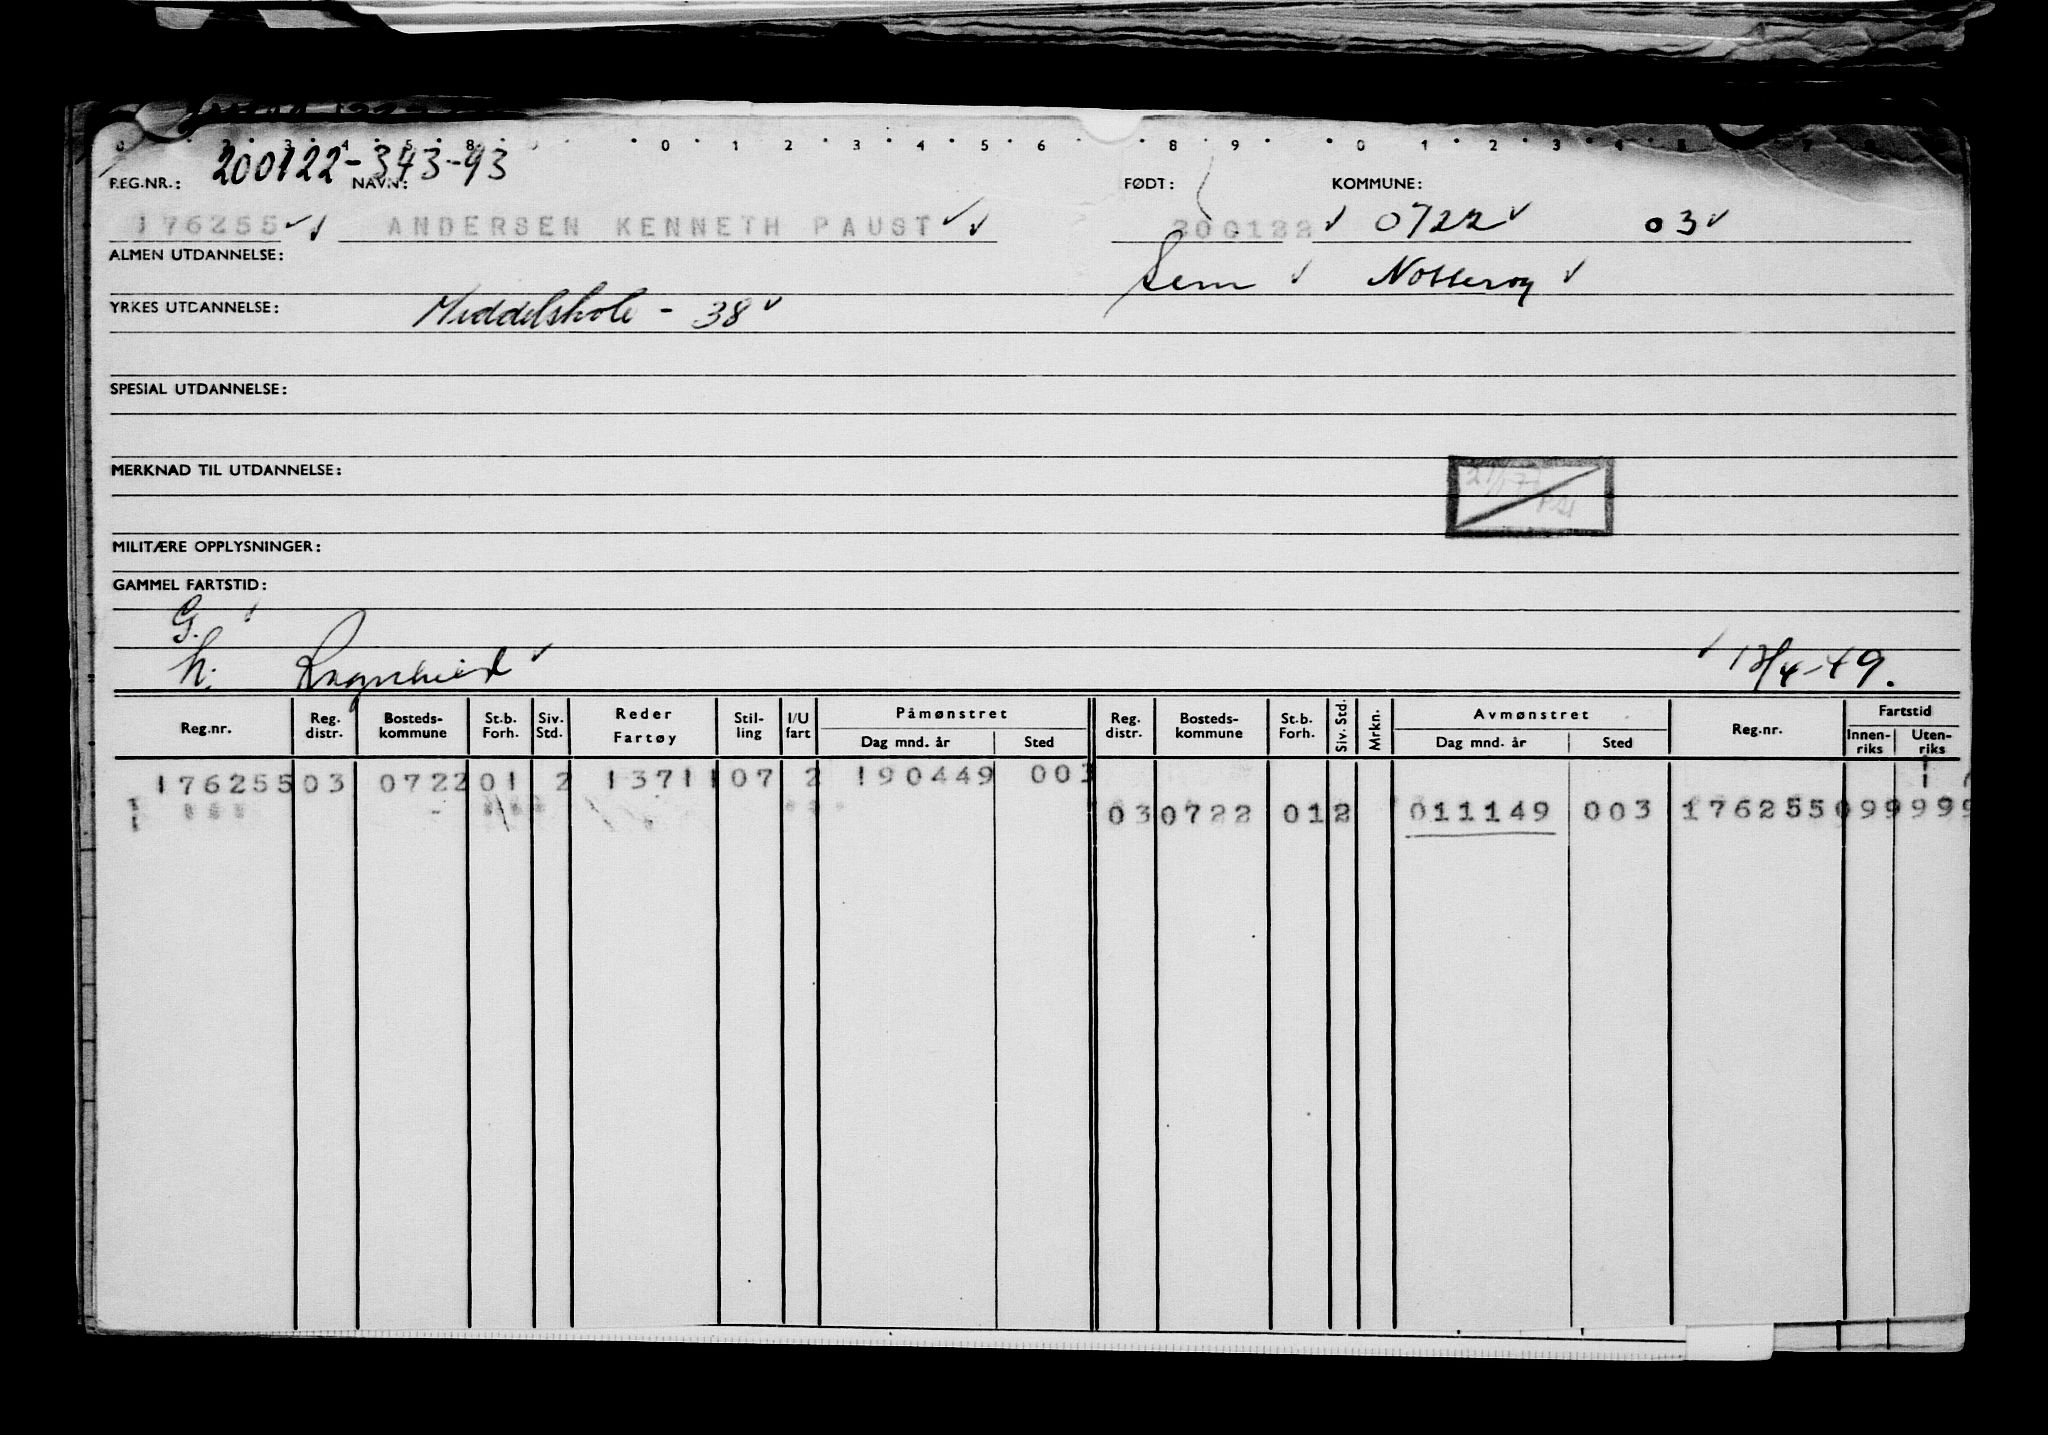 200122-343-93
REG.NR.: NAVN: FØDT: KOMMUNE:
176255 ANDERSEN KENNETH PAUST 200122 0722 03
ALMEN UTDANNELSE: Sem Nøtterøy
YRKES UTDANNELSE: Middelskole - 38
SPESIAL UTDANNELSE:
MERKNAD TIL UTDANNELSE:
MILITÆRE OPPLYSNINGER:
GAMMEL FARTSTID:
G.
h: Ragnhild 13/4-49.
Reg.nr. Reg. distr. Bosteds-kommune St.b. Forh. Siv. Std. Reder Fartøy Stil-ling I/U fart Påmønstret Dag mnd. år Sted Reg. distr. Bosteds-kommune St.b. Forh. Siv. Std. Mrkn. Avmønstret Dag mnd. år Sted Reg.nr. Fartstid Innen-riks Uten-riks
176255 03 0722 01 2 13711 07 2 190449 003
03 0722 01 2 011149 003 176255 099 999